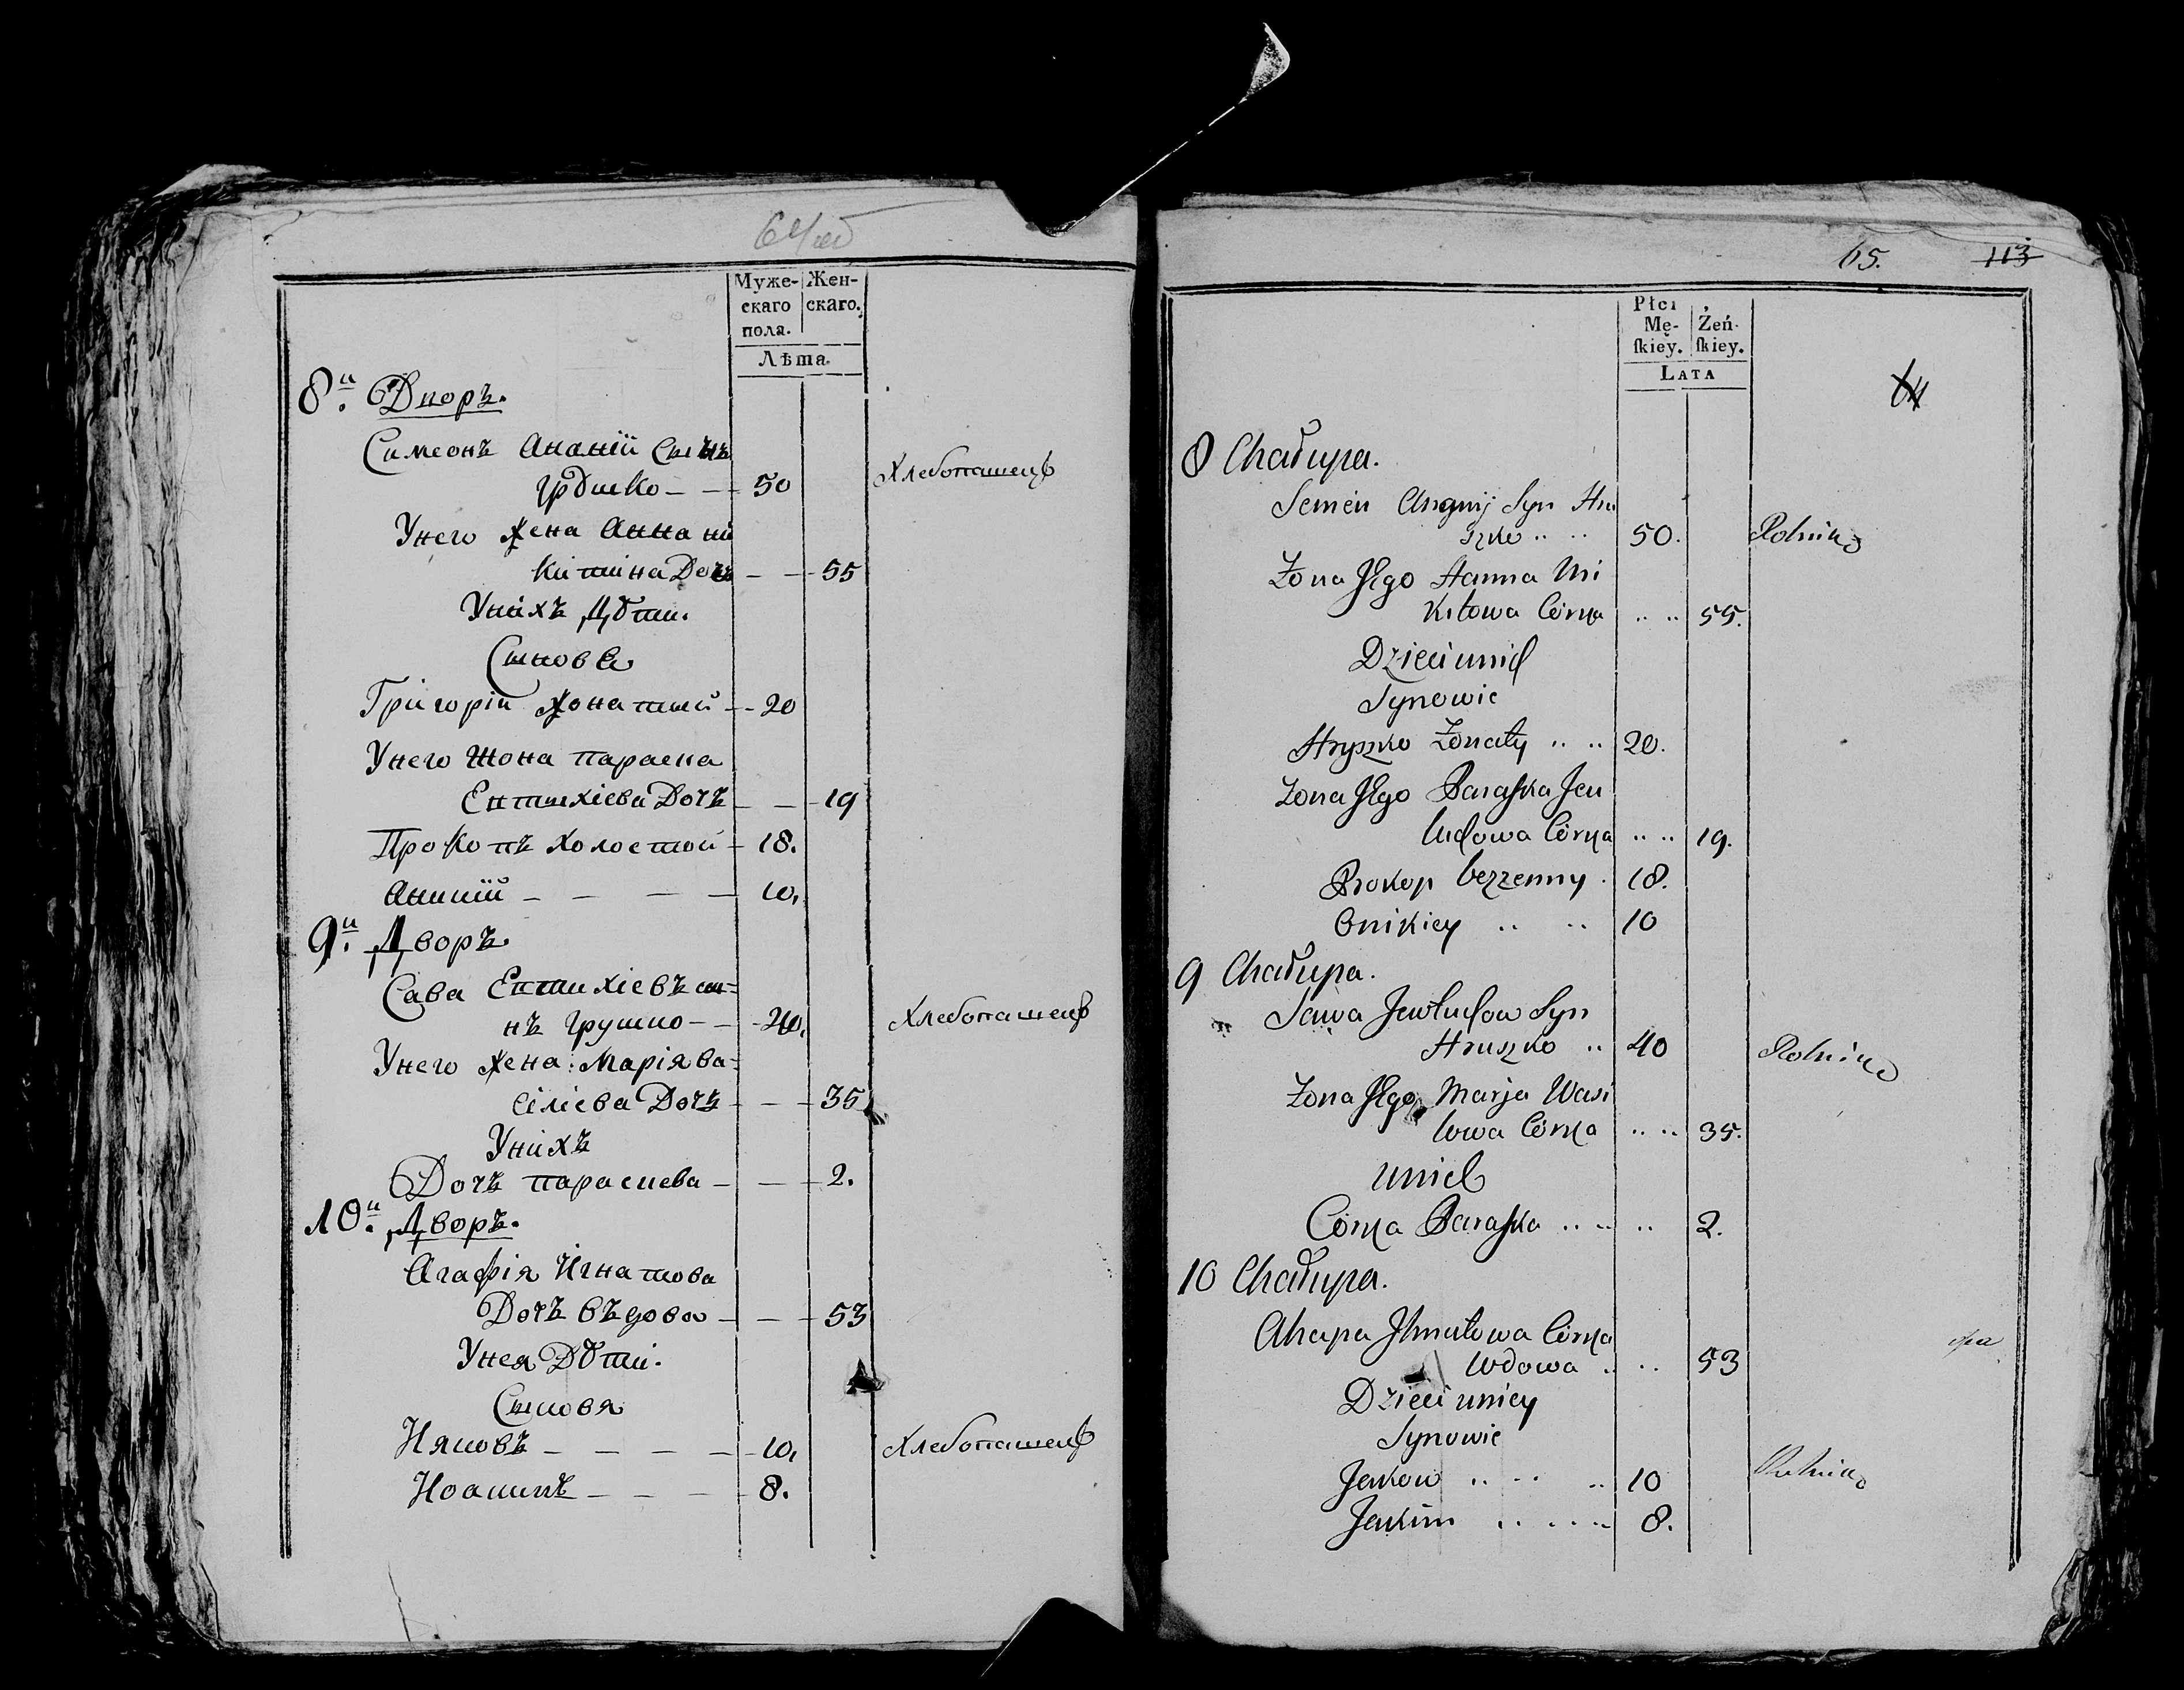 Муже-
скаго
пола.
Жен-
скаго.
Лѣта
8й. Дворъ.
Симеонъ Ананій Сынъ
Грушко - - 50
Хлебопашецъ
Унего жена Анна ни
китина Дочь - - 55
Унихъ Дѣти.
Сыновя
Григорій жонатий - 20
Унего жона параска
Евтихіева Дочъ - - 19
Прокопъ холостой - 18.
Аникій - - - - 10.
9й. Дворъ.
Сава Евтихіевъ сы=
нъ Грушко - - 40.
Хлебопашецъ
Унего жена: Марія ва=
сіліева Дочъ - - 35
Унихъ
Дочъ параскева - - 2.
10й. Дворъ.
Агафія Игнатова
Дочъ въдова - - 53
Унея Дѣти.
Сыновя
Ияковъ - - - - 10.
Хлебопашецъ
Иоакимъ - - - - 8.
65. 113
Płci
Mę-
ſkiey.
Żeń-
ſkiey.
LATA
64
8 Chałupa.
Semen Ananij Syn Hru
szko .. .. 50.
Rolnik
Żona Jego Hanna Mi
kitowa Córka .. .. 55.
Dzieci unich
Synowie
Hryszko Żonaty .. .. 20.
Żona Jego Paraſka Jew
tuchowa Córka .. .. 19.
Prokop bezzenny . 18.
Onikiey .. .. 10
9 Chałupa.
Sawa Jewtuchow Syn
Hruszko .. 40
Rolnik
Żona Jego Marja Wasi
lowa Córka .. .. 35.
unich
Córka Paraſka .. .. .. 2.
10 Chałupa.
Ahapa Jhnatowa Córka
Wdowa .. .. 53
Dzieci uniey
Synowie
Jakow .. .. .. 10
Rolnik
Jakim .. .. .. 8.